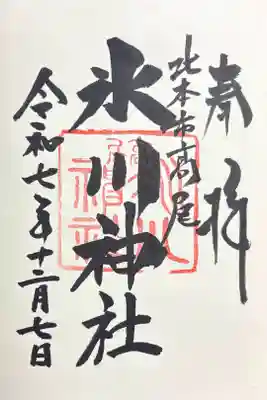 奉拝
北本市高尾
氷川神社
令和七年十二月七日